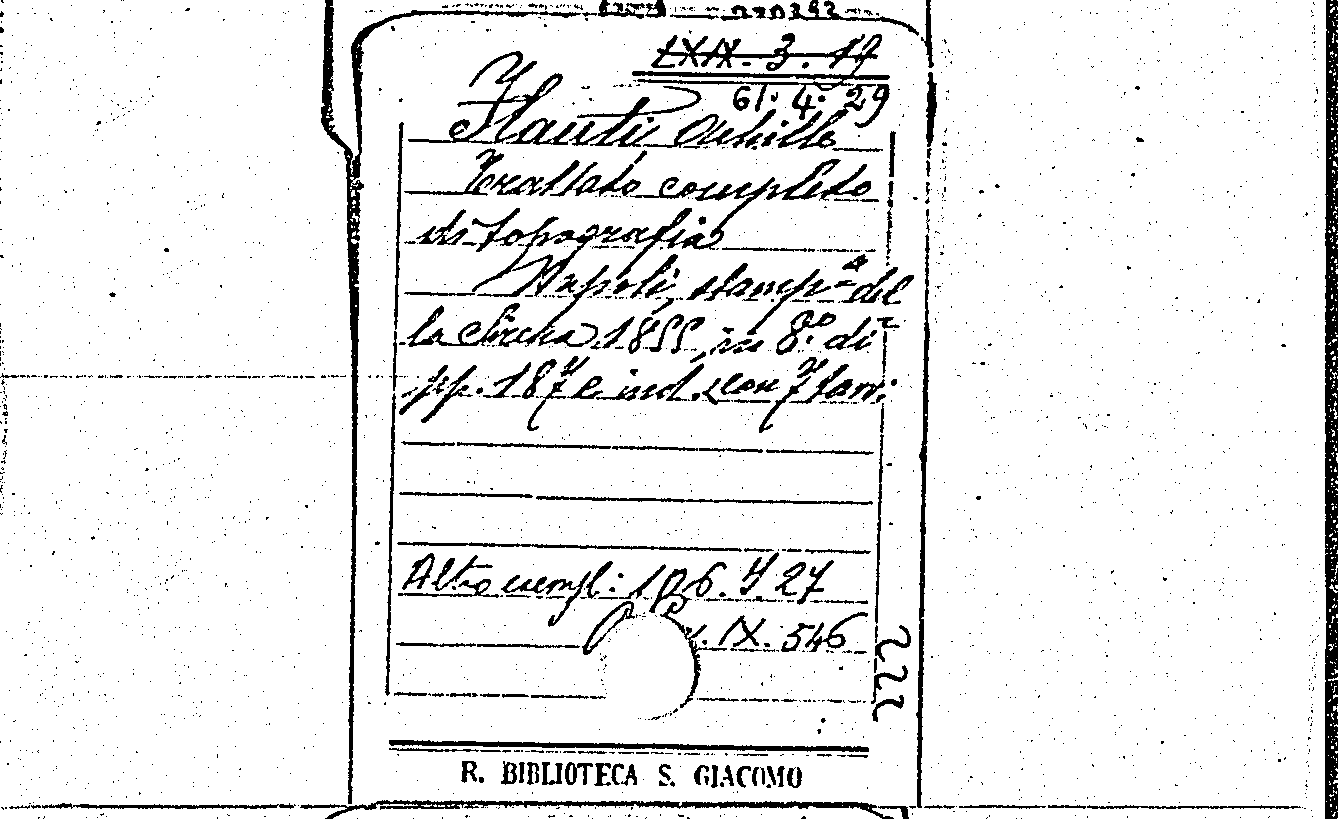 LXIX. 3. 19
61. 4. 29
Flauti, Achille
Trattato completo
di topografia
Napoli, stamp.a del
la Sirena 1855, in 8.o di
pp. 187 e ind. con 7 tav.
Altro esempl: 106. Y. 27
IX. 546
222
R. BIBLIOTECA S. GIACOMO